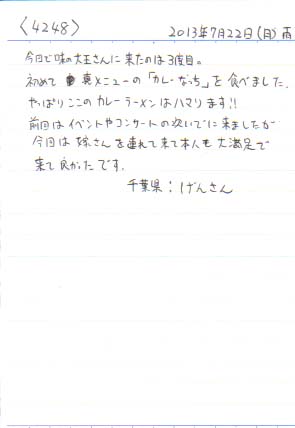 〈4248〉
2013年7月22日(月)雨
今日で味の大王さんに来たのは3度目。
初めて 裏メニューの「カレーなっち」を食べました。
やっぱりここのカレーラーメンはハマります!!
前回はイベントやコンサートの次いでに来ましたが
今回は嫁さんを連れて来て本人も大満足で
来て良かったです。
千葉県：げんさん